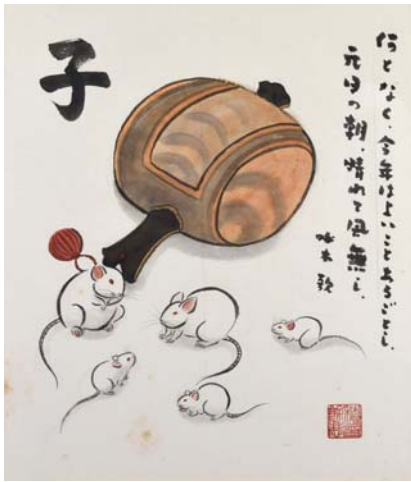 何となく、今年はよいことあるごとし。
元日の朝、晴れて風無し。
啄木歌
子